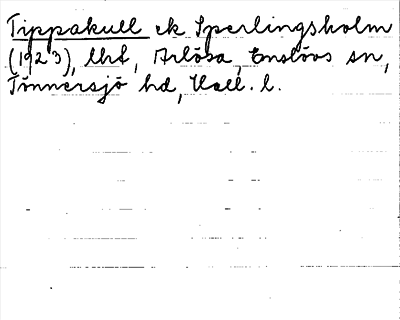 Tippakull ek Sperlingsholm
(1923), lht, Arlösa, Enslövs sn,
Tönnersjö hd, Hall. l.